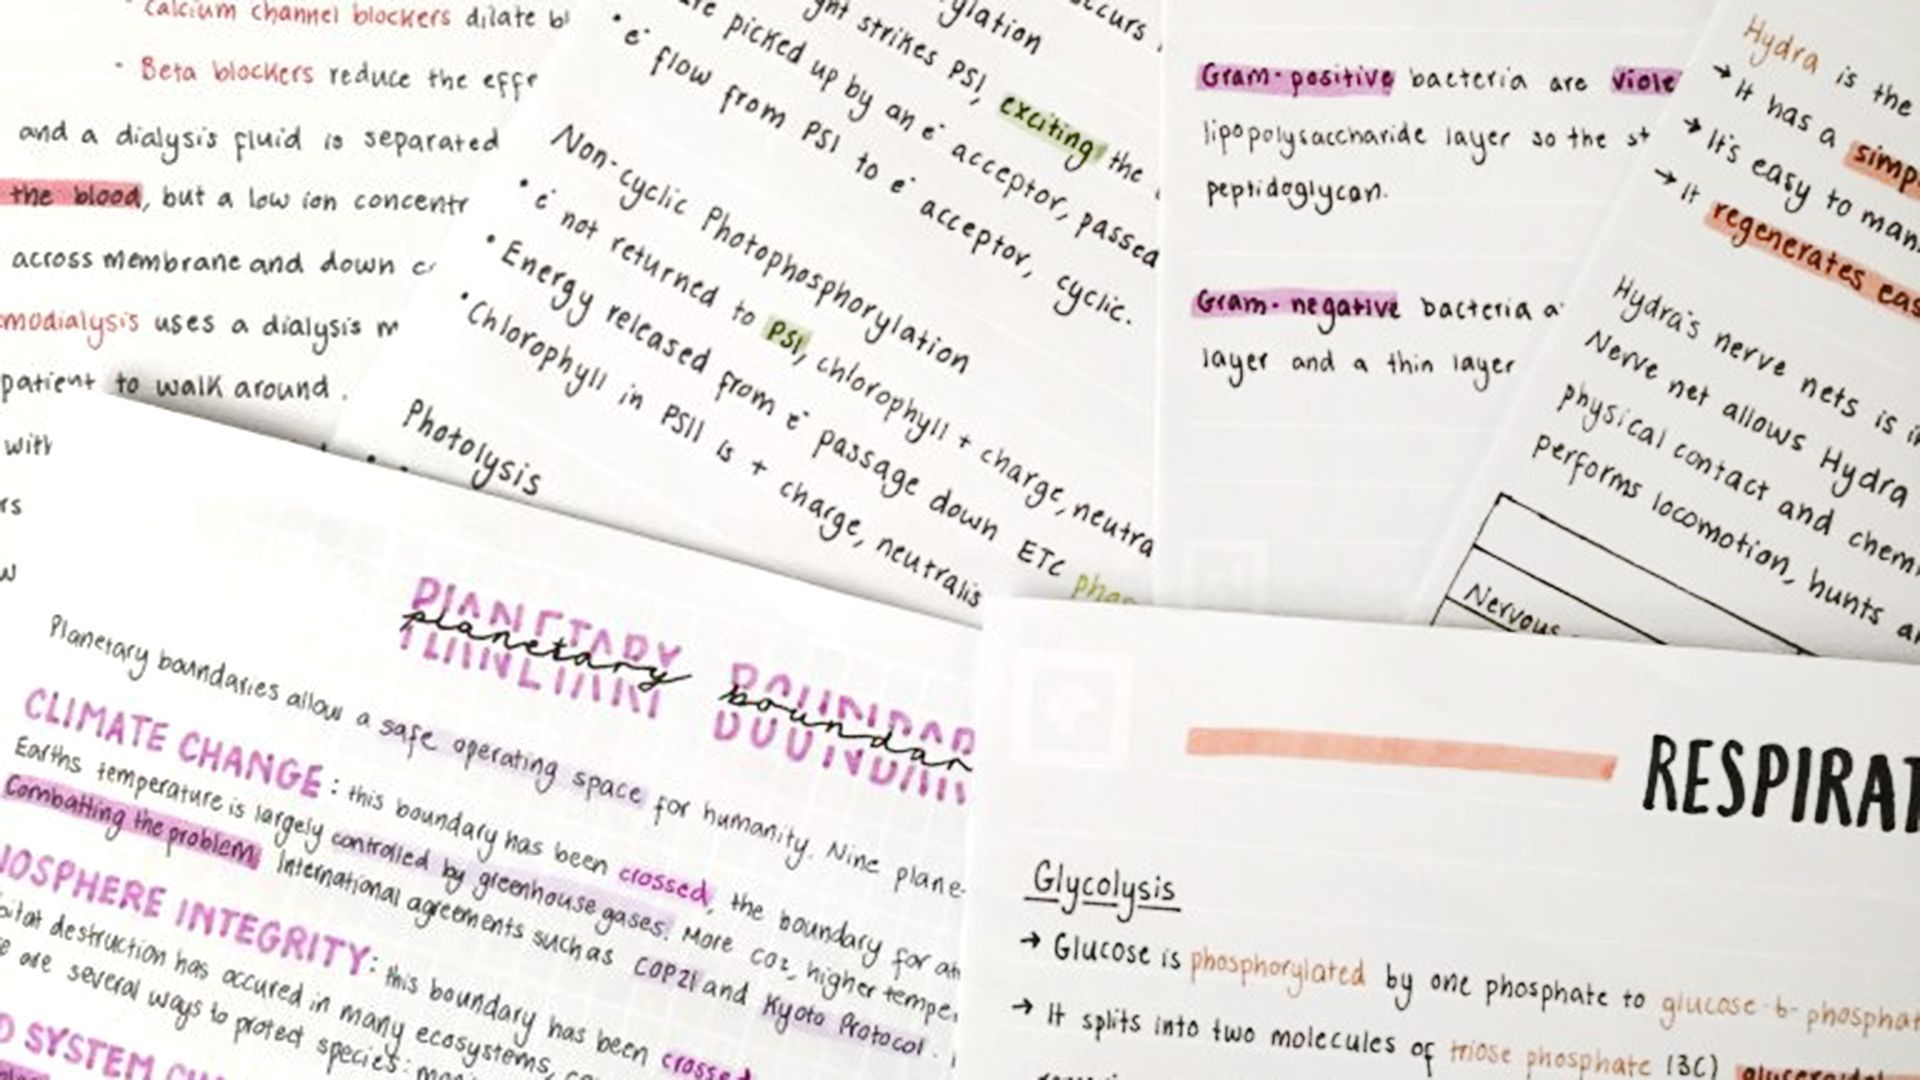 Calcium channel blockers dilate
· Beta blockers reduce the
and a dialysis fluid is separated
the blood, but a low ion
across membrane and down
uses a dialysis
patient to walk around.
with
occurs
strikes PSI, exciting the
picked up by an e⁻ acceptor, passed
• e⁻ flow from PSI to e⁻ acceptor, cyclic.
Non-cyclic Photophosphorylation
• e⁻ not returned to PSI, chlorophyll + charge,
• Energy released from e⁻ passage down ETC
• Chlorophyll in PSII is + charge,
Photolysis
Gram-positive bacteria are
lipopolysaccharide layer so the
peptidoglycan.
Gram-negative bacteria
layer and a thin layer
Hydra is the
→ It has a
→ It's easy to
→ It regenerates
Hydra's nerve nets is
Nerve net allows Hydra
physical contact and
performs locomotion, hunts
Nervous
planetary
Planetary boundaries allow a safe operating space for humanity. Nine plane-
CLIMATE CHANGE: this boundary has been crossed, the boundary for
Earths temperature is largely controlled by greenhouse gases. More CO₂, higher
Combatting the problem: International agreements such as COP21 and Kyoto Protocol.
INTEGRITY: this boundary has been crossed
destruction has accured in many ecosystems,
are several ways to protect species:
SYSTEM
RESPIRAT
Glycolysis
→ Glucose is phosphorylated by one phosphate to glucose-6-
→ It splits into two molecules of triose phosphate (3C)